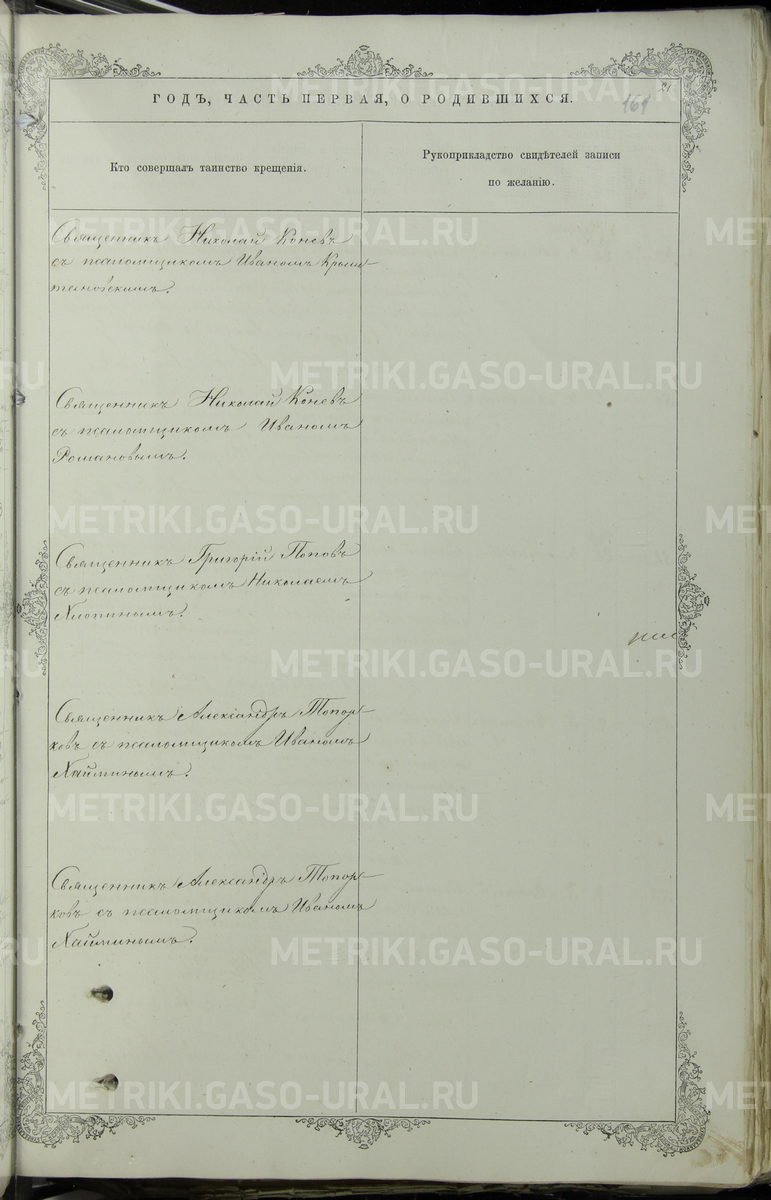 21
ГОДЪ, ЧАСТЬ ПЕРВАЯ, О РОДИВШИХСЯ.
161
Кто совершалъ таинство крещенія.
Рукоприкладство свидѣтелей записи
по желанію.
Священникъ Николай Коневъ
съ псаломщикомъ Иваномъ
Священникъ Николай Коневъ
съ псаломщикомъ Иваномъ
Романовымъ.
Священникъ Григорій Поповъ
съ псаломщикомъ Николаемъ
Хлопинымъ.
Священникъ Александръ Топор-
ковъ съ псаломщикомъ Иваномъ
Хайминымъ.
Священникъ Александръ Топор-
ковъ съ псаломщикомъ Иваномъ
Хайминымъ.
METRIKI.GASO-URAL.RU